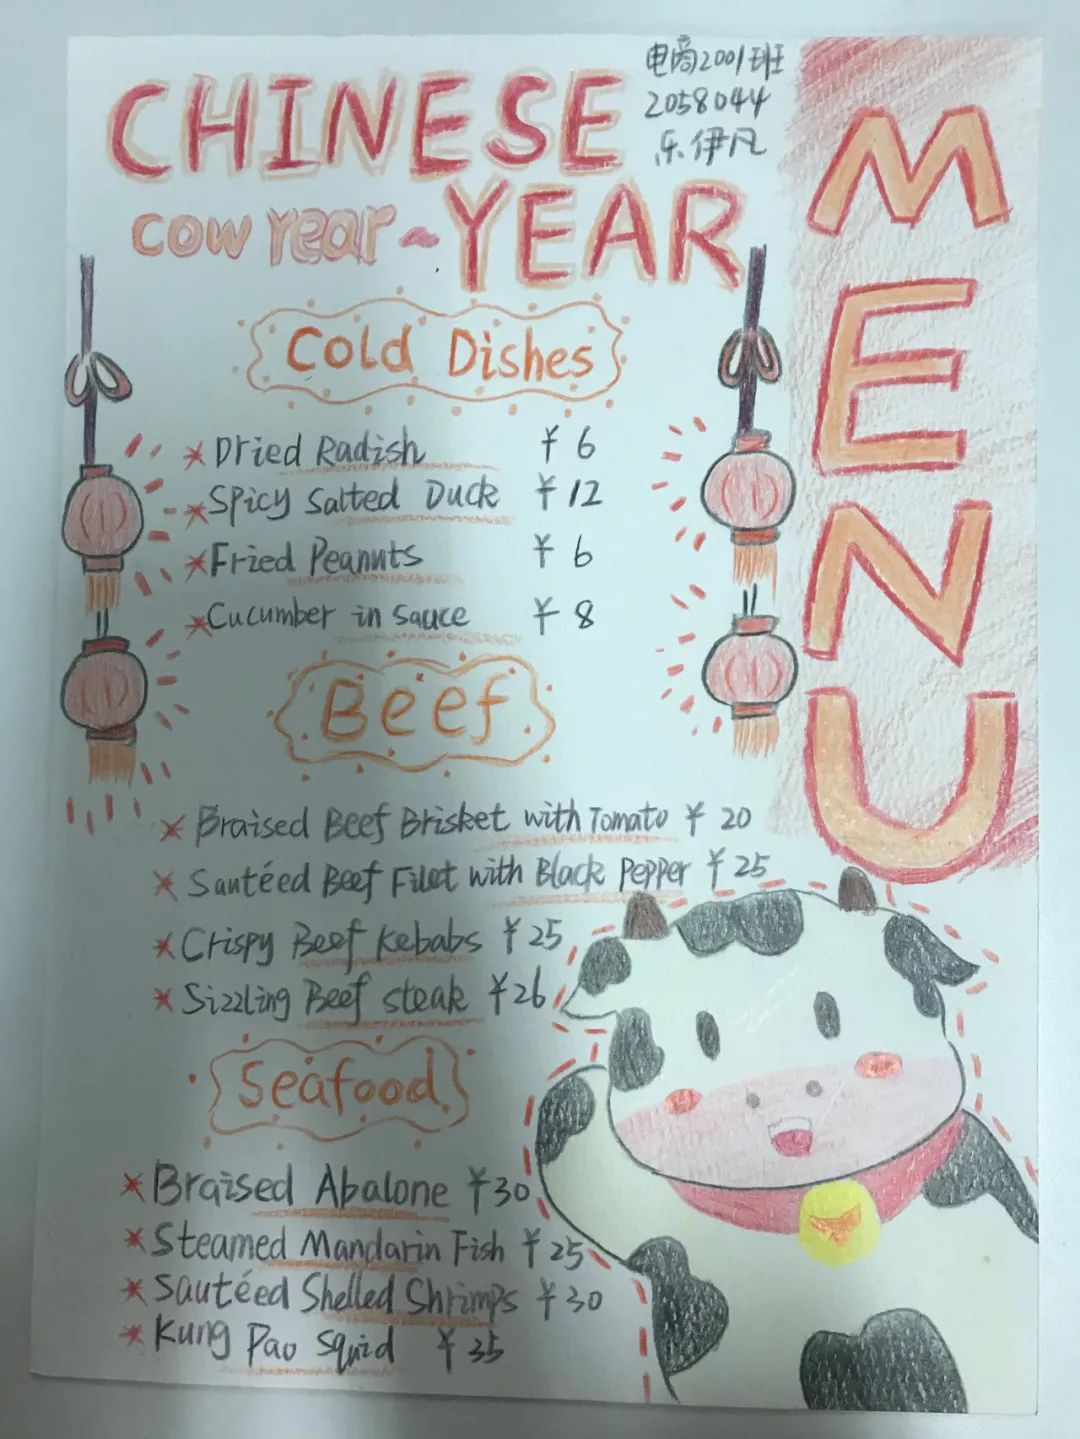 电商2001班
2058044
乐伊凡
CHINESE
cow Year~YEAR
MENU
Cold Dishes
Dried Radish ¥6
Spicy Salted Duck ¥12
Fried Peanuts ¥6
Cucumber in sauce ¥8
Beef
Braised Beef Brisket with Tomato ¥20
Sautéed Beef Filet with Black Pepper ¥25
Crispy Beef Kebabs ¥25
Sizzling Beef steak ¥26
Seafood
Braised Abalone ¥30
Steamed Mandarin Fish ¥25
Sautéed Shelled Shrimps ¥30
Kung Pao Squid ¥35